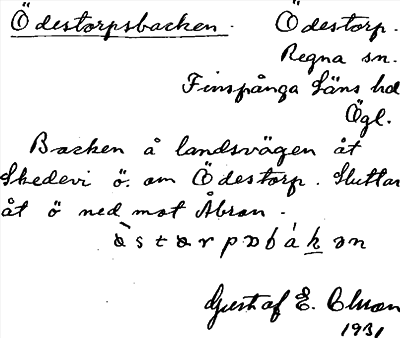 Ödestorpsbacken. Ödestorp.
Regna sn.
Finspånga läns hd
Ögl.
Backen å landsvägen åt
Skedevi ö. om Ödestorp. Sluttar
åt ö ned mot Åbron.
Gustaf E.
1931